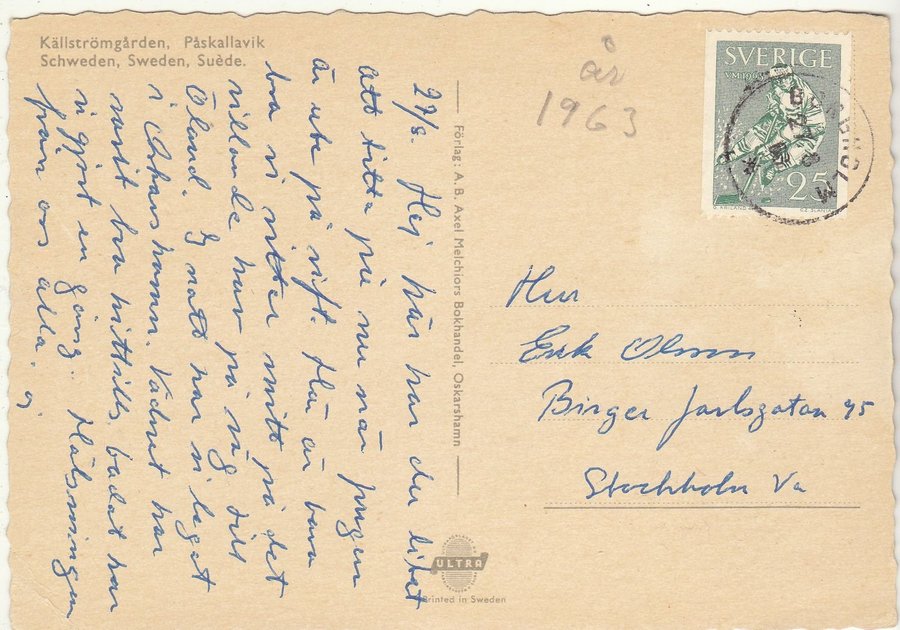 Källströmgården, Påskallavik
Schweden, Sweden, Suède.
27/8. Hej här har du litet
att titta på nu när pugen
är ute på vift. Här är bara
bra vi sitter mitt på det
villande hav på väg till
Öland. I natt har vi legat
i Oskarshamn. Vädret har
varit bra hittills, badat har
vi gjort en gång. Hälsningar
från oss alla.
Förlag: A. B. Axel Melchiors Bokhandel, Oskarshamn
ULTRA
Printed in Sweden
år
1963
SVERIGE
VM 1963
25
BORGHOLM
27 8
Herr
Erik Olsson
Birger Jarlsgatan 95
Stockholm Va